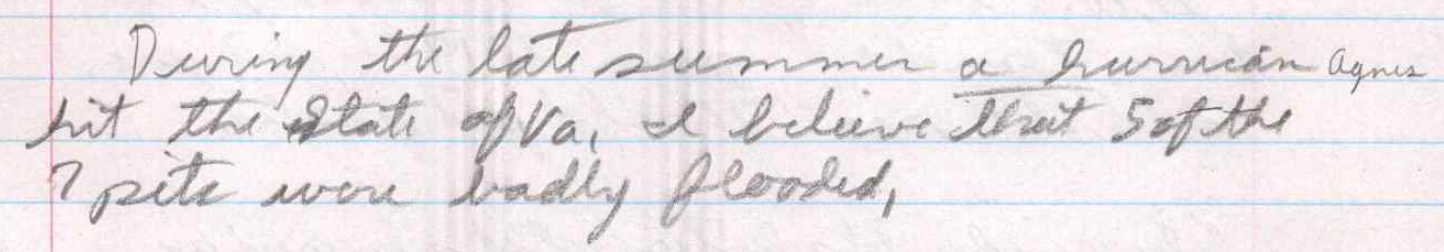 During the late summer a hurrican Agnes
hit the State of Va, I believe that 5 of the
7 pits were badly flooded,